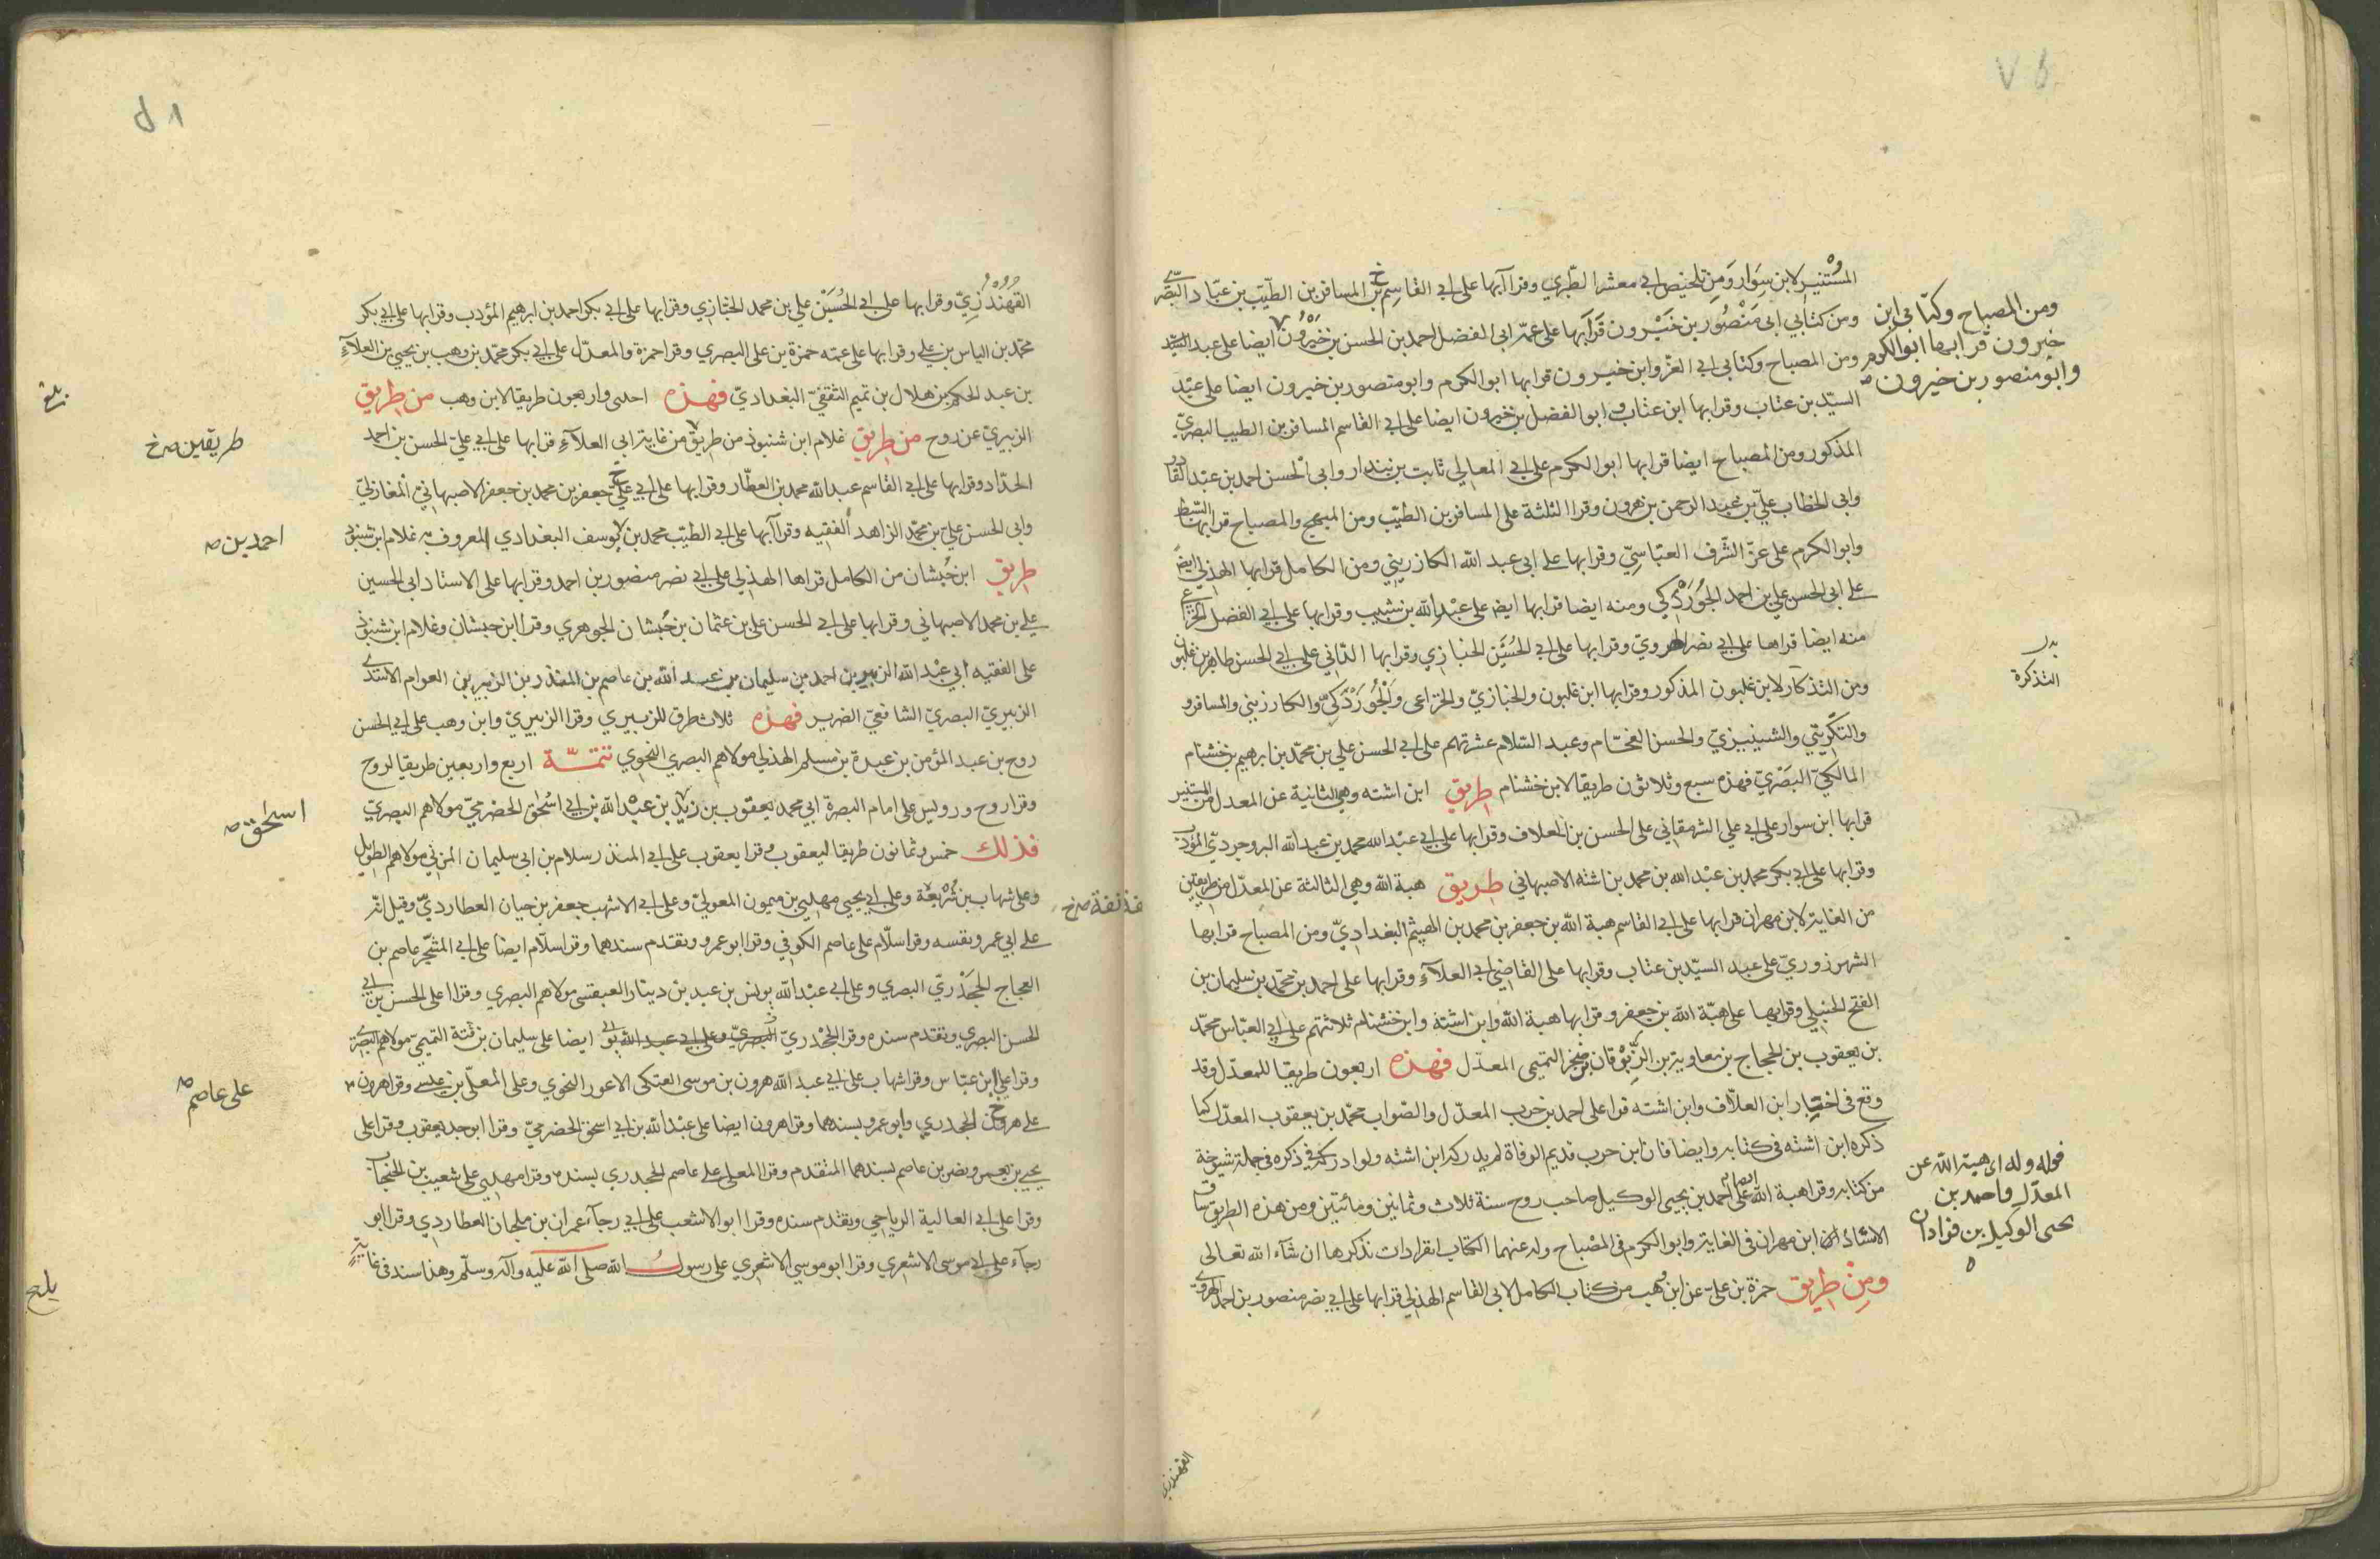 المستنير لابن سوار ومن تلخيص ابي معشر الطبري وقراآ بها على ابي القاسم بن المسافر بن الطيب بن عباد البصري
ومن كتابي ابي منصور بن خيرون قرا بها على عمه ابي الفضل احمد بن الحسن بن خيرون ايضا على عبد السيد
ومن المصباح وكتابي ابي العز وابن خيرون قرا بها ابو الكرم وابو منصور بن خيرون ايضا على عبد
السيد بن عتاب وقرا بها ابن عتاب و ابو الفضل بن خيرون ايضا على ابي القاسم المسافر بن الطيب البصري
المذكور ومن المصباح ايضا قرا بها ابو الكرم على ابي المعالي ثابت بن بندار وابي الحسن احمد بن عبد القادر
وابي الخطاب علي بن عبد الرحمن بن هرون وقرا الثلثة على المسافر بن الطيب ومن المبهج والمصباح قرا بها السبط
وابو الكرم على عز الشرف العباسي وقرا بها على ابي عبد الله الكارزيني ومن الكامل قرا بها الهذلي ايضا
على ابي الحسن علي بن احمد الجوردكي ومنه ايضا قرا بها ايضا على عبد الله بن شبيب وقرا بها على ابي الفضل الخزاعي
منه ايضا قراها على ابي نصر الهروي وقرا بها على ابي الحسين الخبازي وقرا بها الداني على ابي الحسن طاهر بن غلبون
ومن التذكار لابن غلبون المذكور وقرا بها ابن غلبون والخبازي والخزاعي والجوردكي والكارزيني والمسافر و
والتكريتي والشينيزي والحسن الفحام وعبد السلام عشرتهم على ابي الحسن علي بن محمد بن ابرهيم بن خشنام
المالكي البصري فهذه سبع وثلاثون طريقا لابن خشنام طريق ابن اشته وهي الثانية عن المعدل من المستنير
قرا بها ابن سوار على ابي علي الشرمقاني على الحسن بن العلاف وقرا بها على ابي عبد الله محمد بن عبد الله البروجردي المؤدب
وقرا بها على ابي بكر محمد بن عبد الله بن محمد بن اشته الاصبهاني طريق هبة الله وهي الثالثة عن المعدل من طريقين
من الغاية لابن مهران قرا بها على ابي القاسم هبة الله بن جعفر بن محمد بن الهيثم البغدادي ومن المصباح قرا بها
الشهرزوري على عبد السيد بن عتاب وقرا بها على القاضي ابي العلآء وقرا بها على احمد بن محمد بن سليمان بن
الفتح الحنبلي وقرا بها على هبة الله بن جعفر وقرا بها هبة الله وابن اشتة وابن خشنام ثلاثتهم على ابي العباس محمد
بن يعقوب بن الحجاج بن معاوية بن الزبرقان بن صخر التميمي المعدل فهذه اربعون طريقا للمعدل وقد
وقع في اختيار ابن العلاف وابن اشته قرا على احمد بن حرب المعدل والصواب محمد بن يعقوب المعدل كما
ذكره ابن اشته في كتابه وايضا فان ابن حرب قديم الوفاة لم يدركه ابن اشته ولو ادركه ذكره في جملة شيوخه
من كتابه وقرا هبة الله ايضا على احمد بن يحيى الوكيل صاحب روح سنة ثلاث وثمانين ومائتين ومن هذه الطريق
الاستاذ ابن مهران في الغاية وابو الكرم في المصباح وله عنهما الكتاب انفرادات نذكرها ان شآء الله تعالى
ومن طريق حمزة بن علي عن ابن وهب من كتاب الكامل لابي القاسم الهذلي قرا بها على ابي نصر منصور بن احمد الهروي
ومن المصباح وكتابي ابن
خيرون قرا بها ابو الكرم
وابو منصور بن خيرون صح
بدر
التذكرة
قوله وله اي هبة الله عن
المعدل واحمد بن
يحيى الوكيل بن فرادان
القهندزي
القهندزي وقرا بها على ابي الحسين علي بن محمد الخبازي وقرا بها على ابي بكر احمد بن ابرهيم المؤدب وقرا بها على ابي بكر
محمد بن الياس بن علي وقرا بها على عمه حمزة بن علي البصري وقرا حمزة والمعدل على ابي بكر محمد بن وهب بن يحيى بن العلآء
بن عبد الحكم بن هلال بن تميم الثقفي البغدادي فهذه احدى واربعون طريقا لابن وهب من طريق
الزبيري عن روح من طريق غلام ابن شنبوذ من طريق من غاية ابي العلآء قرا بها على ابي علي الحسن بن احمد
الحداد وقرا بها على ابي القاسم عبد الله محمد بن العطار وقرا بها على ابي علي جعفر بن محمد بن جعفر الاصبهاني المغازلي
وابي الحسن علي بن محمد الزاهد الفقيه وقراآ بها على ابي الطيب محمد بن يوسف البغدادي المعروف به غلام ابن شنبوذ
طريق ابن حبشان من الكامل قراها الهذلي على ابي نصر منصور بن احمد وقرا بها على الاستاد ابي الحسين
علي بن محمد الاصبهاني وقرا بها على ابي الحسن علي بن عثمان بن حبشان الجوهري وقرا ابن حبشان وغلام ابن شنبوذ
على الفقيه ابي عبد الله الزبير بن احمد بن سليمان بن عبد الله بن عاصم بن المنذر بن الزبير بن العوام الاسدي
الزبيري البصري الشافعي الضرير فهذه ثلاث طرق للزبيري وقرا الزبيري وابن وهب على ابي الحسن
روح بن عبد المؤمن بن عبدة بن مسلم الهذلي مولاهم البصري النحوي تتمة اربع واربعين طريقا لروح
وقرا روح ورويس على امام البصرة ابي محمد يعقوب بن زيد بن عبد الله بن ابي اسحق الحضرمي مولاهم البصري
فذلك خمس وثمانون طريقا ليعقوب وقرا يعقوب على ابي المنذر سلام بن ابي سليمان المزني مولاهم الطويل
وعلى شهاب بن شريعة وعلى ابي يحيى مهدي بن ميمون المعولي وعلى ابي الاشهب جعفر بن حيان العطاردي وقيل انه
على ابي عمرو بنفسه وقرا سلام على عاصم الكوفي وقرا ابو عمرو وتقدم سندهما وقرا سلام ايضا على ابي المشجر عاصم بن
العجاج الجحدري البصري وعلى ابي عبد الله يونس بن عبيد بن دينار العبقسي مولاهم البصري وقراا على الحسن بن ابي
الحسن البصري وتقدم سنده وقرا الجحدري ايضا على سليمان بن قتة التميمي مولاهم البصري
وقرا على ابن عباس وقرا شهاب على ابي عبد الله هرون بن موسى العتكي الاعور النحوي وعلى المعلى بن عيسى وقرا هرون
على الجحدري وابو عمرو بسندهما وقرا هرون ايضا على عبد الله بن ابي اسحق الحضرمي وقرا ابو جد يعقوب وقرا على
يحيى بن يعمر ونصر بن عاصم بسندهما المتقدم وقرا المعلى على عاصم الجحدري بسنده وقرا مهدي على شعيب بن الحبحاب
وقرا على ابي العالية الرياحي وتقدم سنده وقرا ابو الاشعب على ابي رجآء عمران بن ملحان العطاردي وقرا ابو
رجآء على ابي موسى الاشعري وقرا ابو موسى الاشعري على رسول الله صلى الله عليه وآله وسلم وهذا سند في غاية
طريقين صح
احمد بن صح
اسحق صح
على عاصم صح